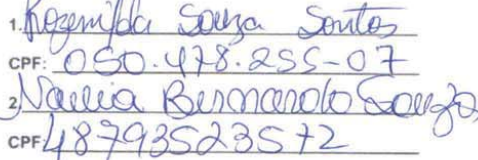 1. Rozenilda Souza Santos
CPF: 050.478.255-07
2. Bernardo Souza
CPF 48793523572